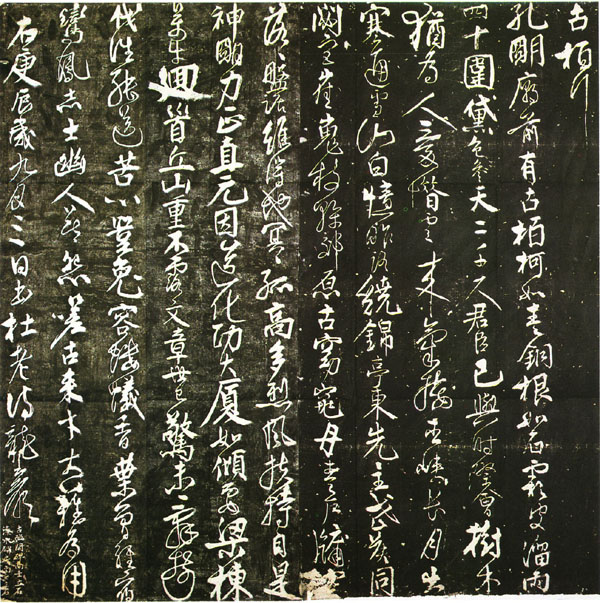 古柏行
孔明廟前有古柏柯如青銅根如石霜皮溜雨
四十圍黛色參天二千尺君臣已與時際會樹木
猶為人愛惜雲來氣接巫峽長月出
寒通雪山白憶昨路繞錦亭東先主武侯同
閟宮崔嵬枝幹郊原古窈窕丹青戶牖空
落落盤踞雖得地冥冥孤高多烈風扶持自是
神明力正直元因造化功大廈如傾要梁棟
萬牛迴首丘山重不露文章世已驚未辭翦
伐誰能送苦心豈免容螻蟻香葉曾經宿
鸞鳳志士幽人莫怨嗟古來材大難為用
右庚辰歲九月三日書杜老詩龍巖